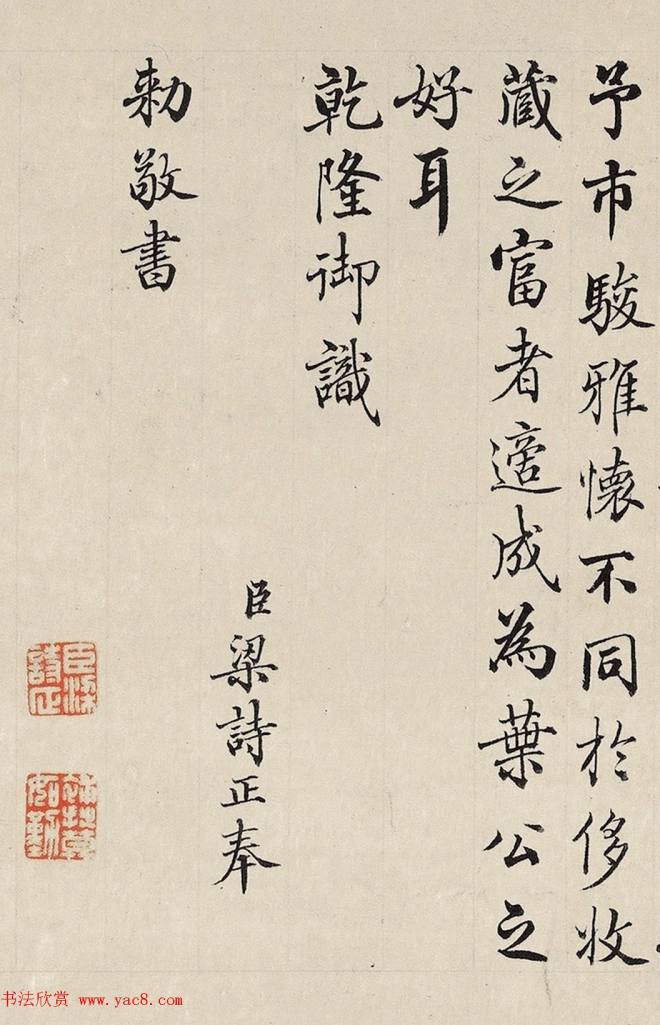 予市駿雅懐不同於侈收
藏之富者適成為葉公之
好耳
乾隆御識
臣梁詩正奉
勅敬書
臣梁
詩正
书法欣赏 www.yac8.com